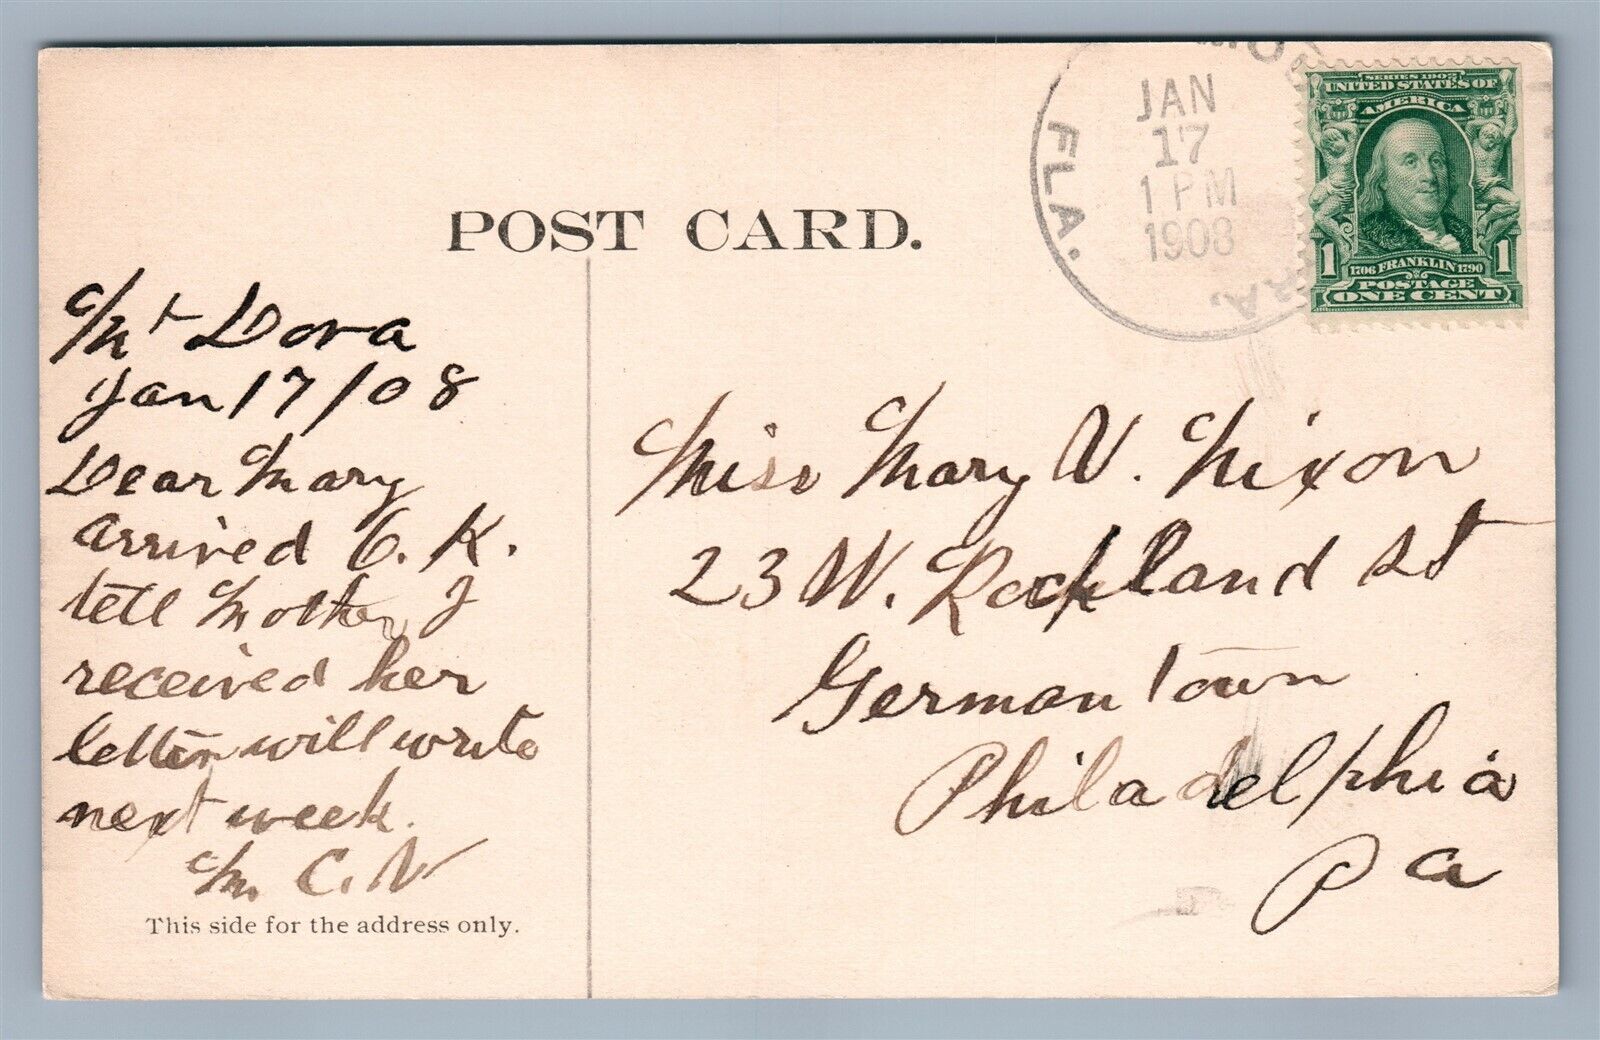 POST CARD.
Mt Dora
Jan 17/08
Dear Mary
arrived O.K.
tell Mother I
received her
letter will write
next week.
M. C. N
This side for the address only.
FLA.
JAN
17
1 PM
1908
SERIES 1902
UNITED STATES OF
AMERICA
1 1
1706 FRANKLIN 1790
POSTAGE
ONE CENT
Miss Mary V. Nixon
23 W. Rockland St
Germantown
Philadelphia
Pa